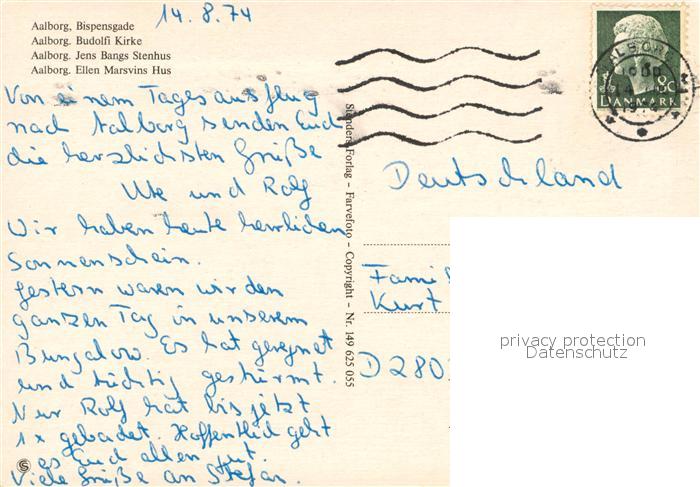 14.8.74
Aalborg, Bispensgade
Aalborg. Budolfi Kirke
Aalborg. Jens Bangs Stenhus
Aalborg. Ellen Marsvins Hus
Von einem Tagesausflug
nach Aalborg senden Euch
die herzlichsten Grüße
Ute und Rolf
Wir haben heute herrlichen
Sonnenschein.
Gestern waren wir den
ganzen Tag in unserem
Bungalow. Es hat geregnet
und tüchtig gestürmt.
Nur Rolf hat bis jetzt
1x gebadet. Hoffentlich geht
es Euch allen gut.
Viele Grüße an Stefan.
Stenders Forlag – Farvefoto – Copyright – Nr. 149 625 055
80
DANMARK
AALBORG
Deutschland
Fami
Kurt
D 280
privacy protection
Datenschutz